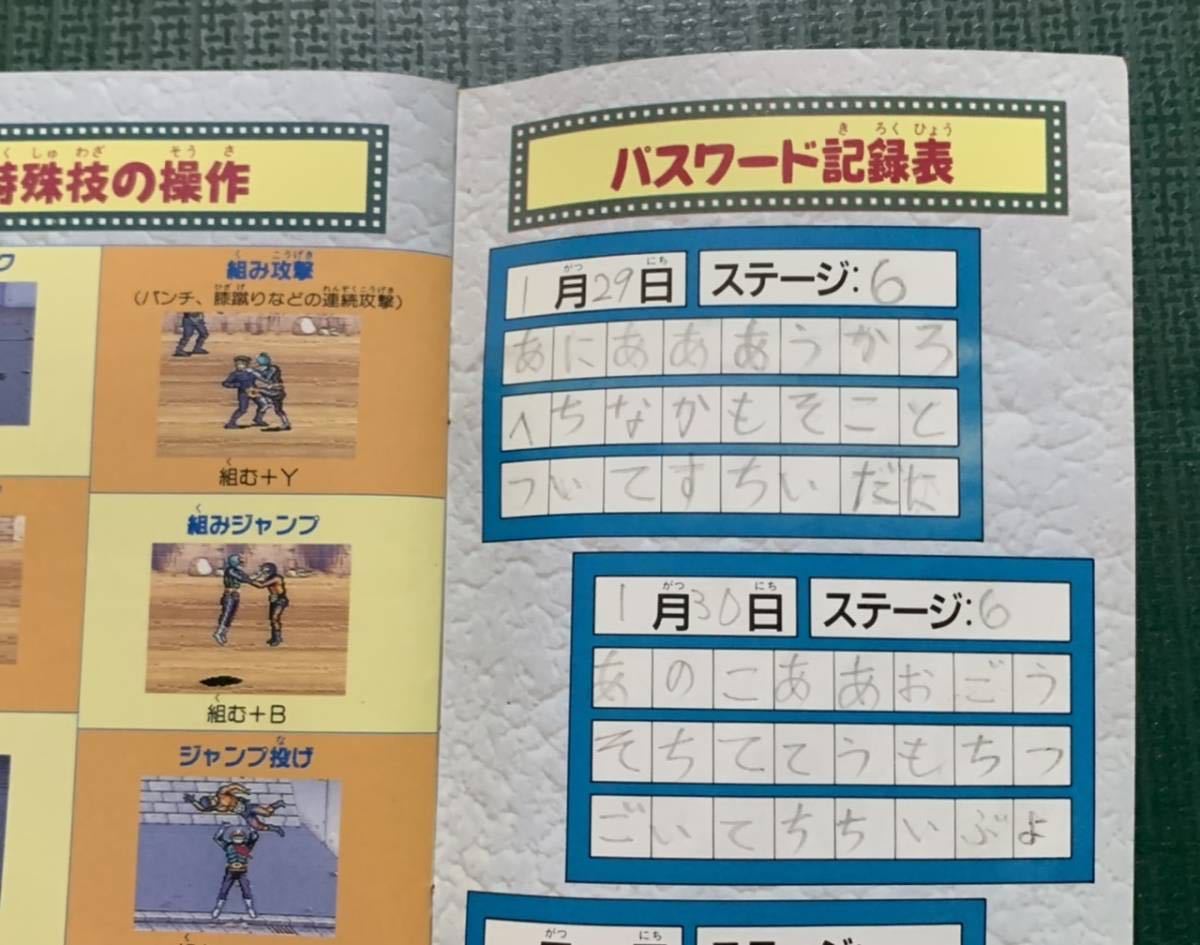 特殊技の操作
くしゅわざ そうさ
ク
組み攻撃
く こうげき
(パンチ、膝蹴りなどの連続攻撃)
ひざげ れんぞくこうげき
組む+Y
く
組みジャンプ
く
組む+B
く
ジャンプ投げ
な
パスワード記録表
きろくひょう
1月29日 ステージ:6
がつ にち
あにあああうかろ
へちなかもそこと
ついてすちいだに
1月30日 ステージ:6
がつ にち
あのこああおごう
そちててうもちつ
ごいてちちいぶよ
がつ にち